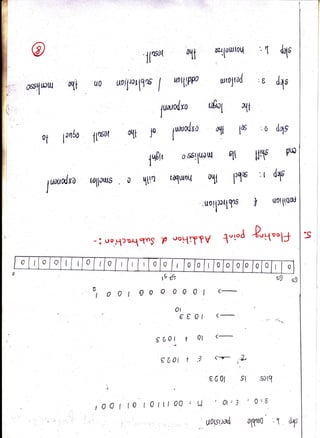 step 4: double precision
S=0, E=10, M = 0011 01 0111 001
bias is 1023
E' => E + 1023
=> 10 + 1023
=> 1033
10
=> 1 0 0 0 0 0 0 1 0 0 1
2
5. Floating point Addition & Subtraction :-
addition & subtraction.
step 1: select the number with a smaller exponent
and shift its mantissa right
step 2: set the exponent of the result equal to
the large exponent
step 3: perform addition / subtraction on the mantissa
step 4: normalize the result.
8